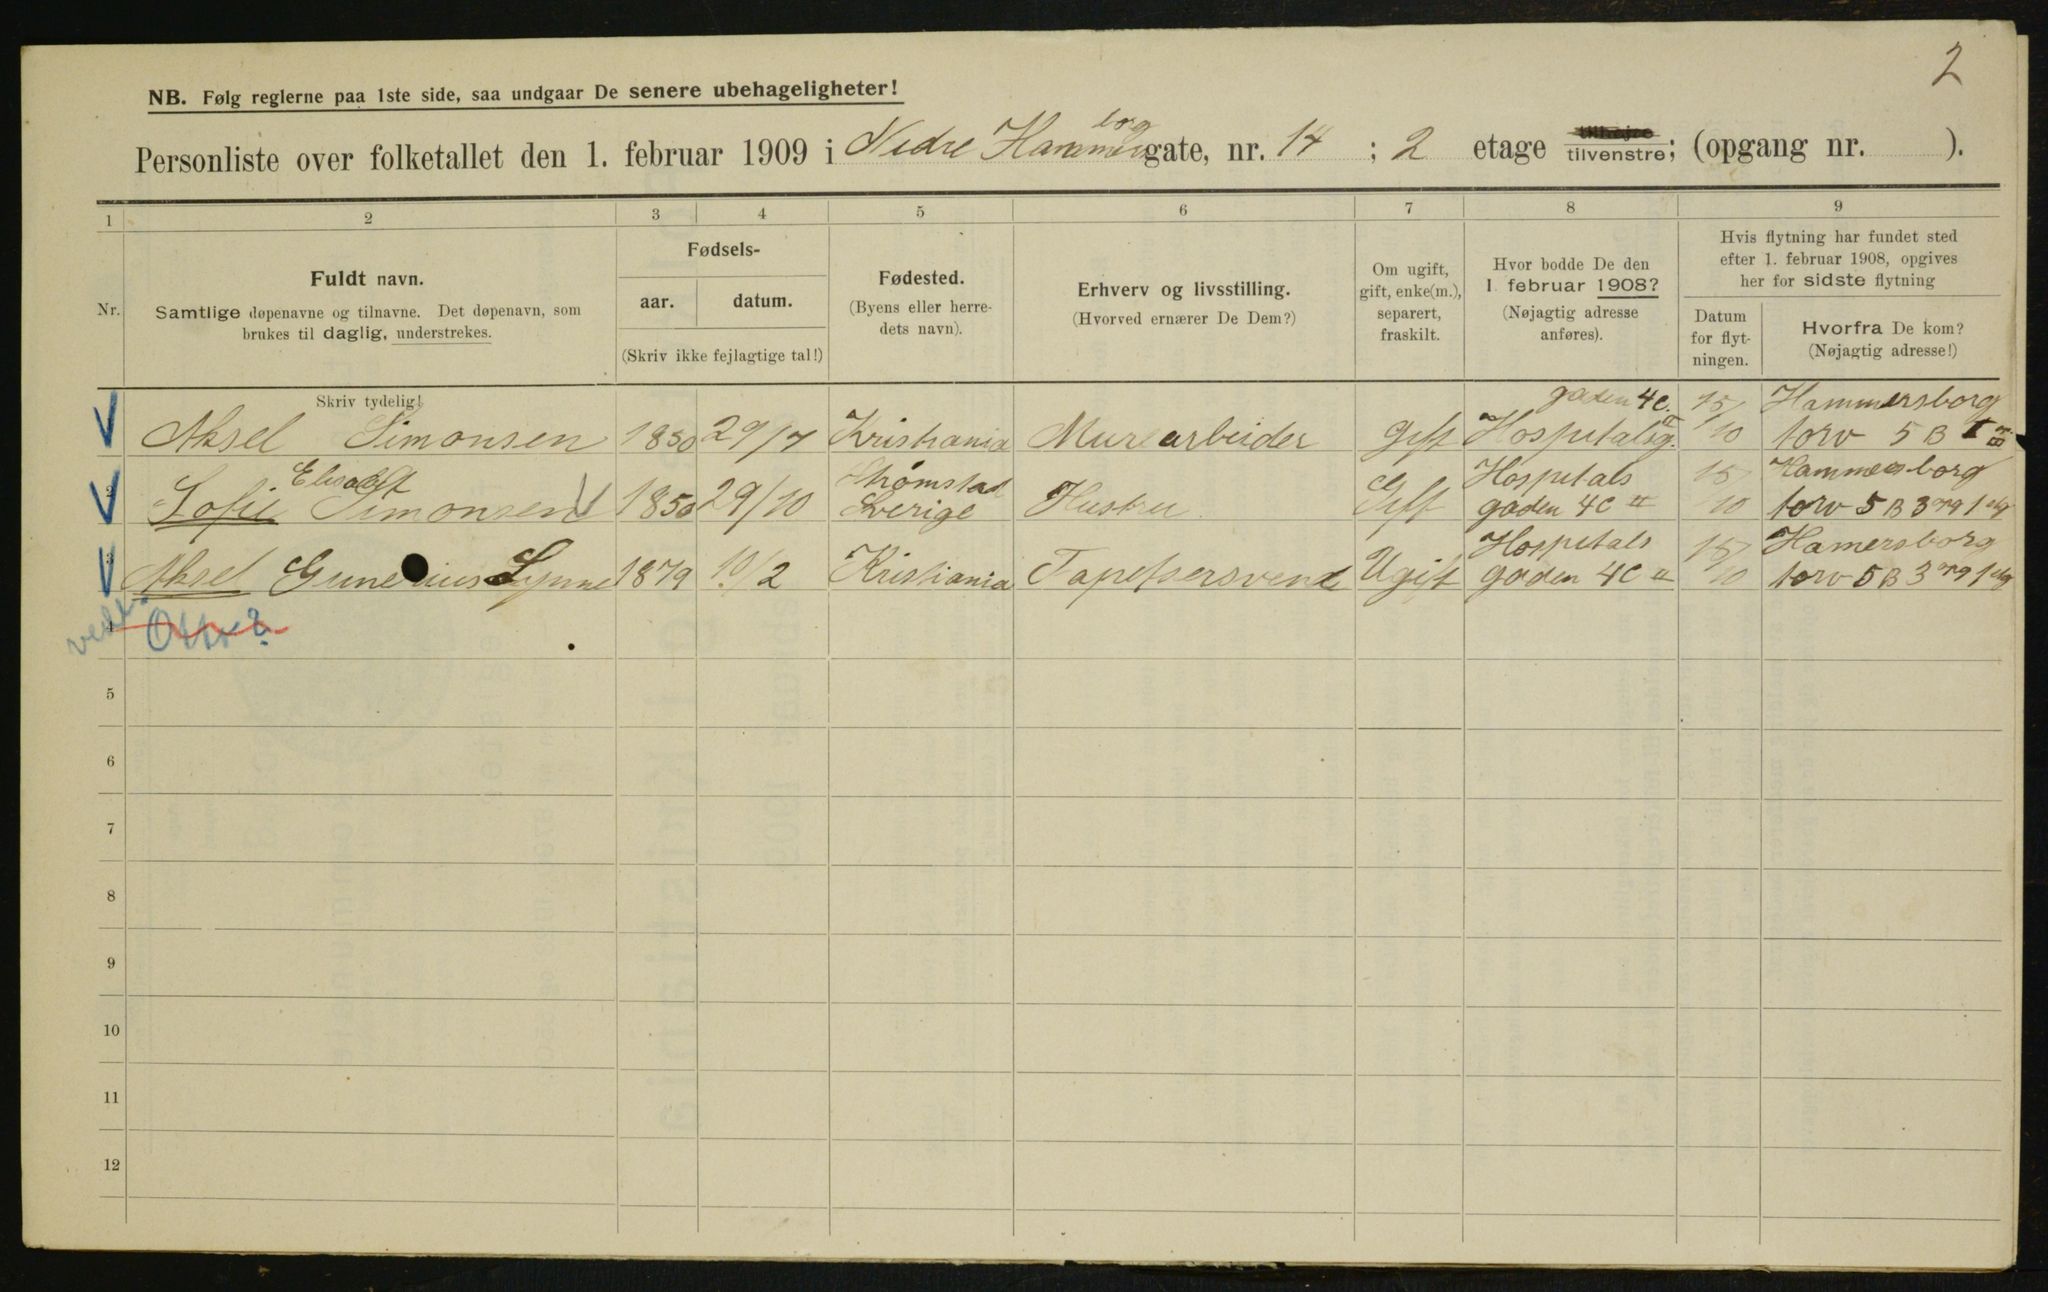 2
NB. Følg reglerne paa 1ste side, saa undgaar De senere ubehageligheter!
Personliste over folketallet den 1. februar 1909 i Nedre Hammersborg gate, nr. 14 ; 2 etage tilhøire tilvenstre; (opgang nr. ).
1 2 3 4 5 6 7 8 9
Nr.
Fuldt navn.
Samtlige døpenavne og tilnavne. Det døpenavn, som
brukes til daglig, understrekes.
Skriv tydelig!
Fødsels-
aar. datum.
(Skriv ikke fejlagtige tal!)
Fødested.
(Byens eller herre-
dets navn).
Erhverv og livsstilling.
(Hvorved ernærer De Dem?)
Om ugift,
gift, enke(m.),
separert,
fraskilt.
Hvor bodde De den
1 februar 1908?
(Nøjagtig adresse
anføres).
Hvis flytning har fundet sted
efter 1. februar 1908, opgives
her for sidste flytning
Datum
for flyt-
ningen.
Hvorfra De kom?
(Nøjagtig adresse!)
gaden 4c. II 15/ Hammersborg
Aksel Simonsen 1850 29/7 Kristiania Murearbeider gift Hospitalsg. 10 torv 5 B
Elisabet Strømstad Hospitals 15/ Hammersborg
2 Sofie Simonsen 1850 29/10 Sverige Hustru Gift gaden 4c II 10 torv 5 B 3 opg 1 etg
Hospitals 15/ Hamersborg
3 Aksel Gunerius Lynne 1879 10/2 Kristiania Tapetsersvend Ugift gaden 4c II 10 torv 5 B 3 opg 1 etg
4 Otto?
5
6
7
8
9
10
11
12